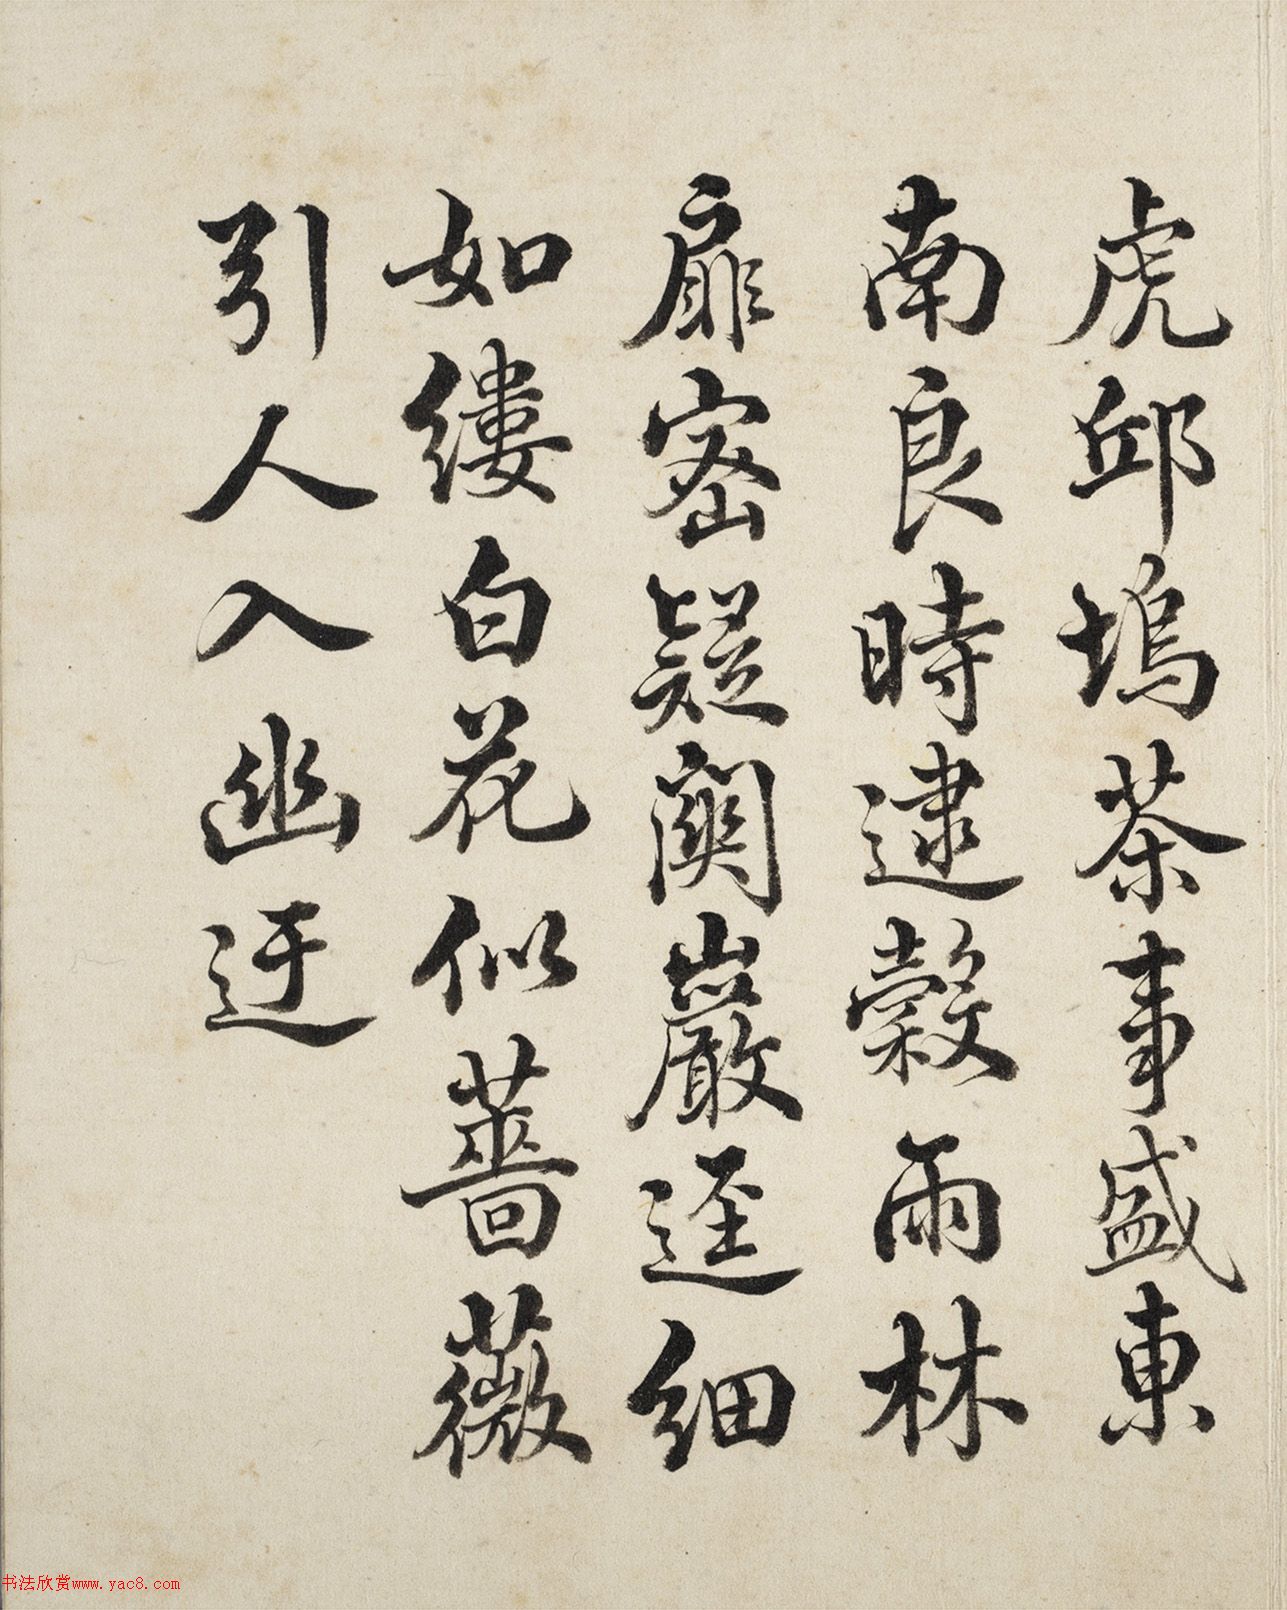 虎邱塢茶事盛東
南良時逮穀雨林
扉密疑關巖逕細
如縷白花似薔薇
引人入幽迂
书法欣赏www.yac8.com